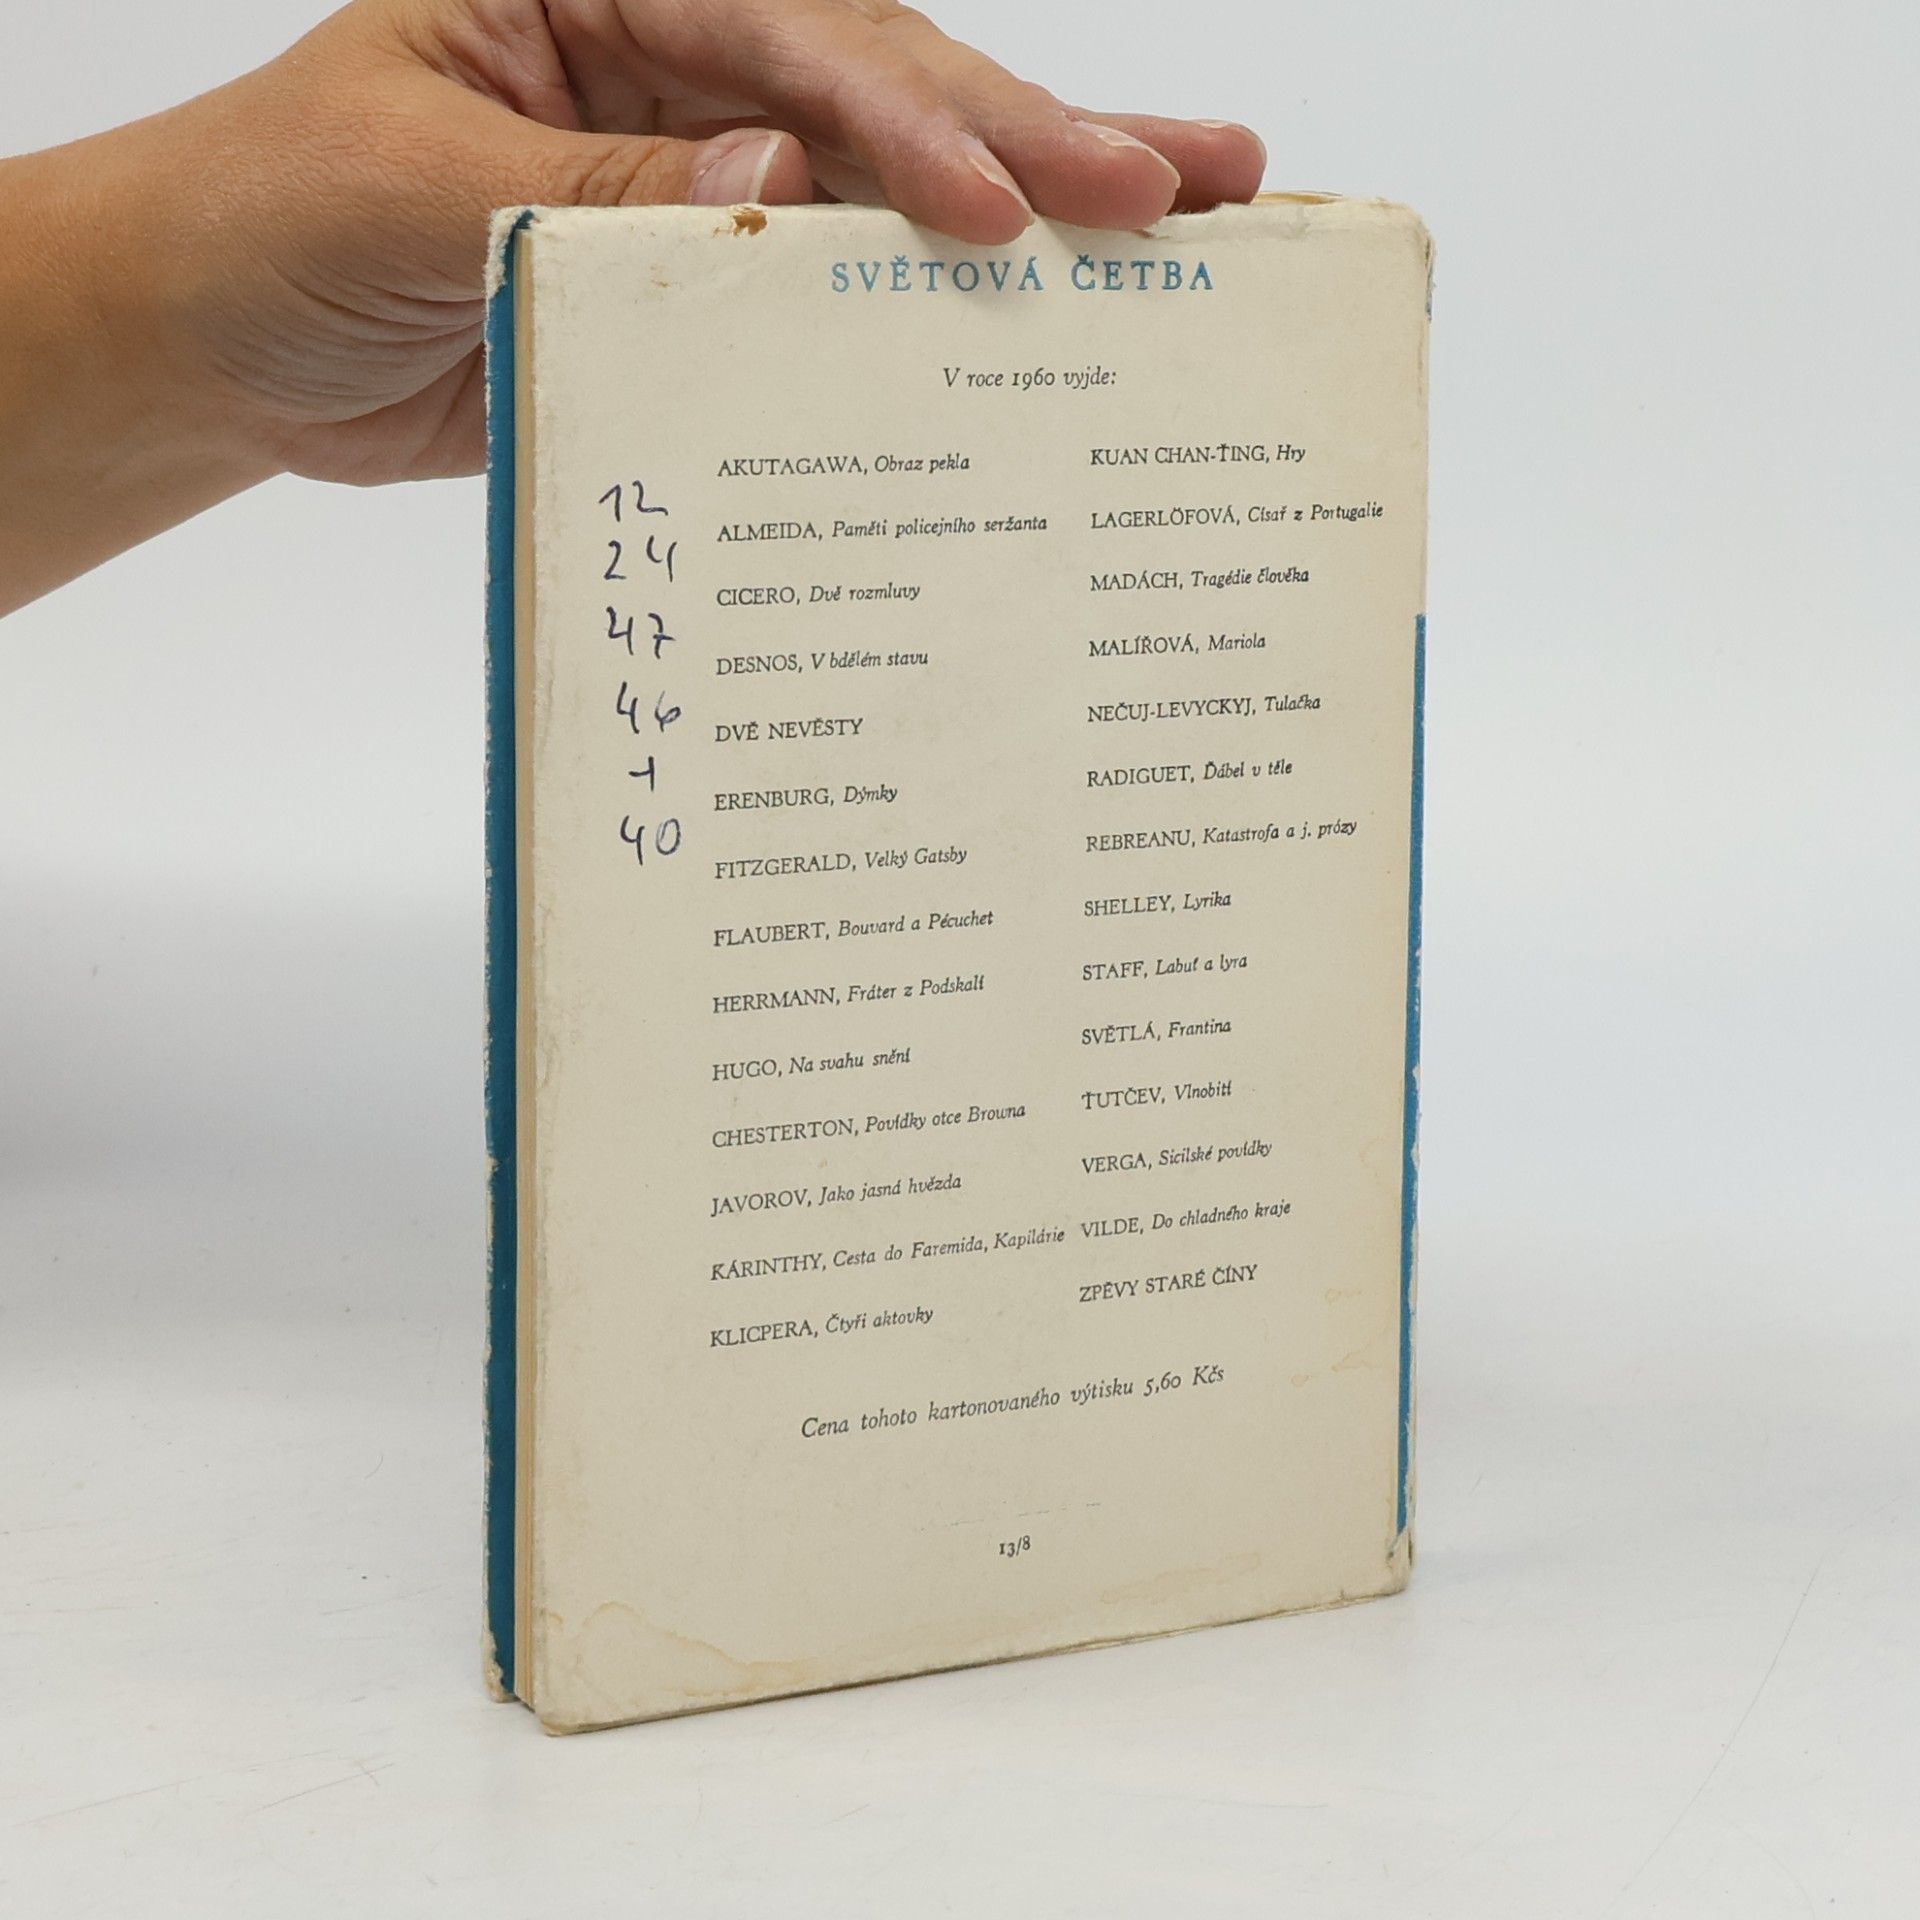 SVĚTOVÁ ČETBA
V roce 1960 vyjde:
AKUTAGAWA, Obraz pekla
ALMEIDA, Paměti policejního seržanta
CICERO, Dvě rozmluvy
DESNOS, V bdělém stavu
DVĚ NEVĚSTY
ERENBURG, Dýmky
FITZGERALD, Velký Gatsby
FLAUBERT, Bouvard a Pécuchet
HERRMANN, Fráter z Podskalí
HUGO, Na svahu snění
CHESTERTON, Povídky otce Browna
JAVOROV, Jako jasná hvězda
KÁRINTHY, Cesta do Faremida, Kapilárie
KLICPERA, Čtyři aktovky
KUAN CHAN-ŤING, Hry
LAGERLÖFOVÁ, Císař z Portugalie
MADÁCH, Tragédie člověka
MALÍŘOVÁ, Mariola
NEČUJ-LEVYCKYJ, Tulačka
RADIGUET, Ďábel v těle
REBREANU, Katastrofa a j. prózy
SHELLEY, Lyrika
STAFF, Labuť a lyra
SVĚTLÁ, Frantina
ŤUTČEV, Vlnobití
VERGA, Sicilské povídky
VILDE, Do chladného kraje
ZPĚVY STARÉ ČÍNY
Cena tohoto kartonovaného výtisku 5,60 Kčs
13/8
12
24
47
46
40